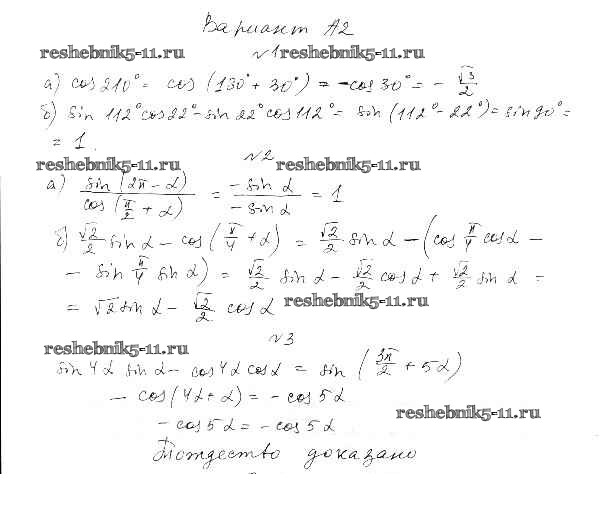 Вариант А2
reshebnik5-11.ru №1 reshebnik5-11.ru
а) cos 210° = cos (130° + 30°) = -cos 30° = - √3/2
б) sin 112° cos 22° - sin 22° cos 112° = sin (112° - 22°) = sin 90° =
= 1.
reshebnik5-11.ru №2 reshebnik5-11.ru
а) sin (2π - α) / cos (π/2 + α) = -sin α / -sin α = 1
б) √2/2 sin α - cos (π/4 + α) = √2/2 sin α - (cos π/4 cos α -
- sin π/4 sin α) = √2/2 sin α - √2/2 cos α + √2/2 sin α =
= √2 sin α - √2/2 cos α reshebnik5-11.ru
№3
reshebnik5-11.ru
sin 4α sin α - cos 4α cos α = sin (3π/2 + 5α)
- cos (4α + α) = - cos 5α
reshebnik5-11.ru
- cos 5α = - cos 5α
Тотдество доказано